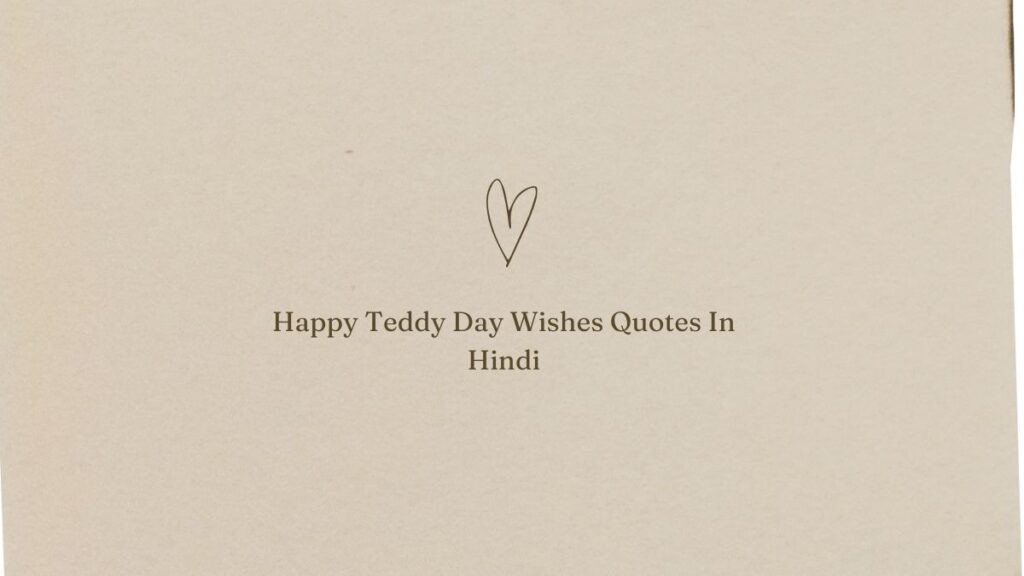 Happy Teddy Day Wishes Quotes In
Hindi